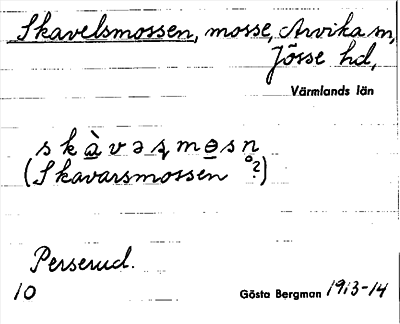 Skavelsmossen, mosse, Arvika m,
Jösse hd,
Värmlands län
skàvəʂmɵsn̥
(Skavarsmossen ?)
Perserud.
10 Gösta Bergman 1913-14